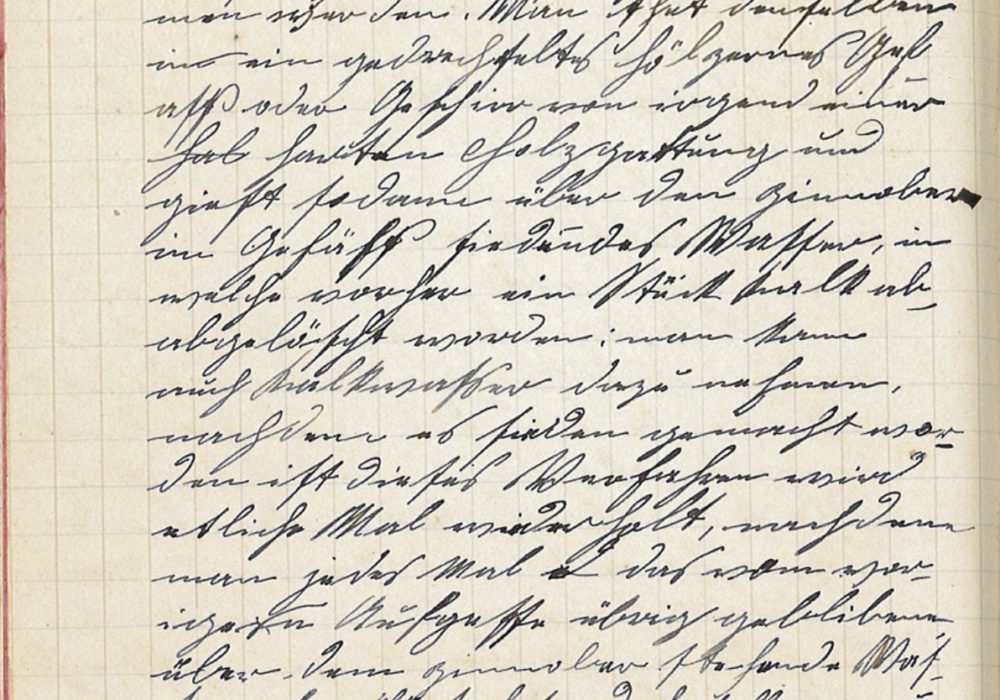 men werden. Man thut denselben
in ein gedrechseltes hölzernes Gef
äss oder Geschirr von irgend einer
halb harten Holzgattung und
gießt sodann über den Zinnober
im Gefäss siedendes Wasser, in
welche vorher ein Stück Kalk ab
abgelöscht worden; man kann
auch Kalkwasser dazu nehmen,
nachdem es sieden gemacht wor-
den ist dieses Verfahren wird
etliche Mal wiederholt, nachdem
man jedes Mal das vom vor-
igen Aufgusse übrig geblibene
über dem Zinnober stehende Was-